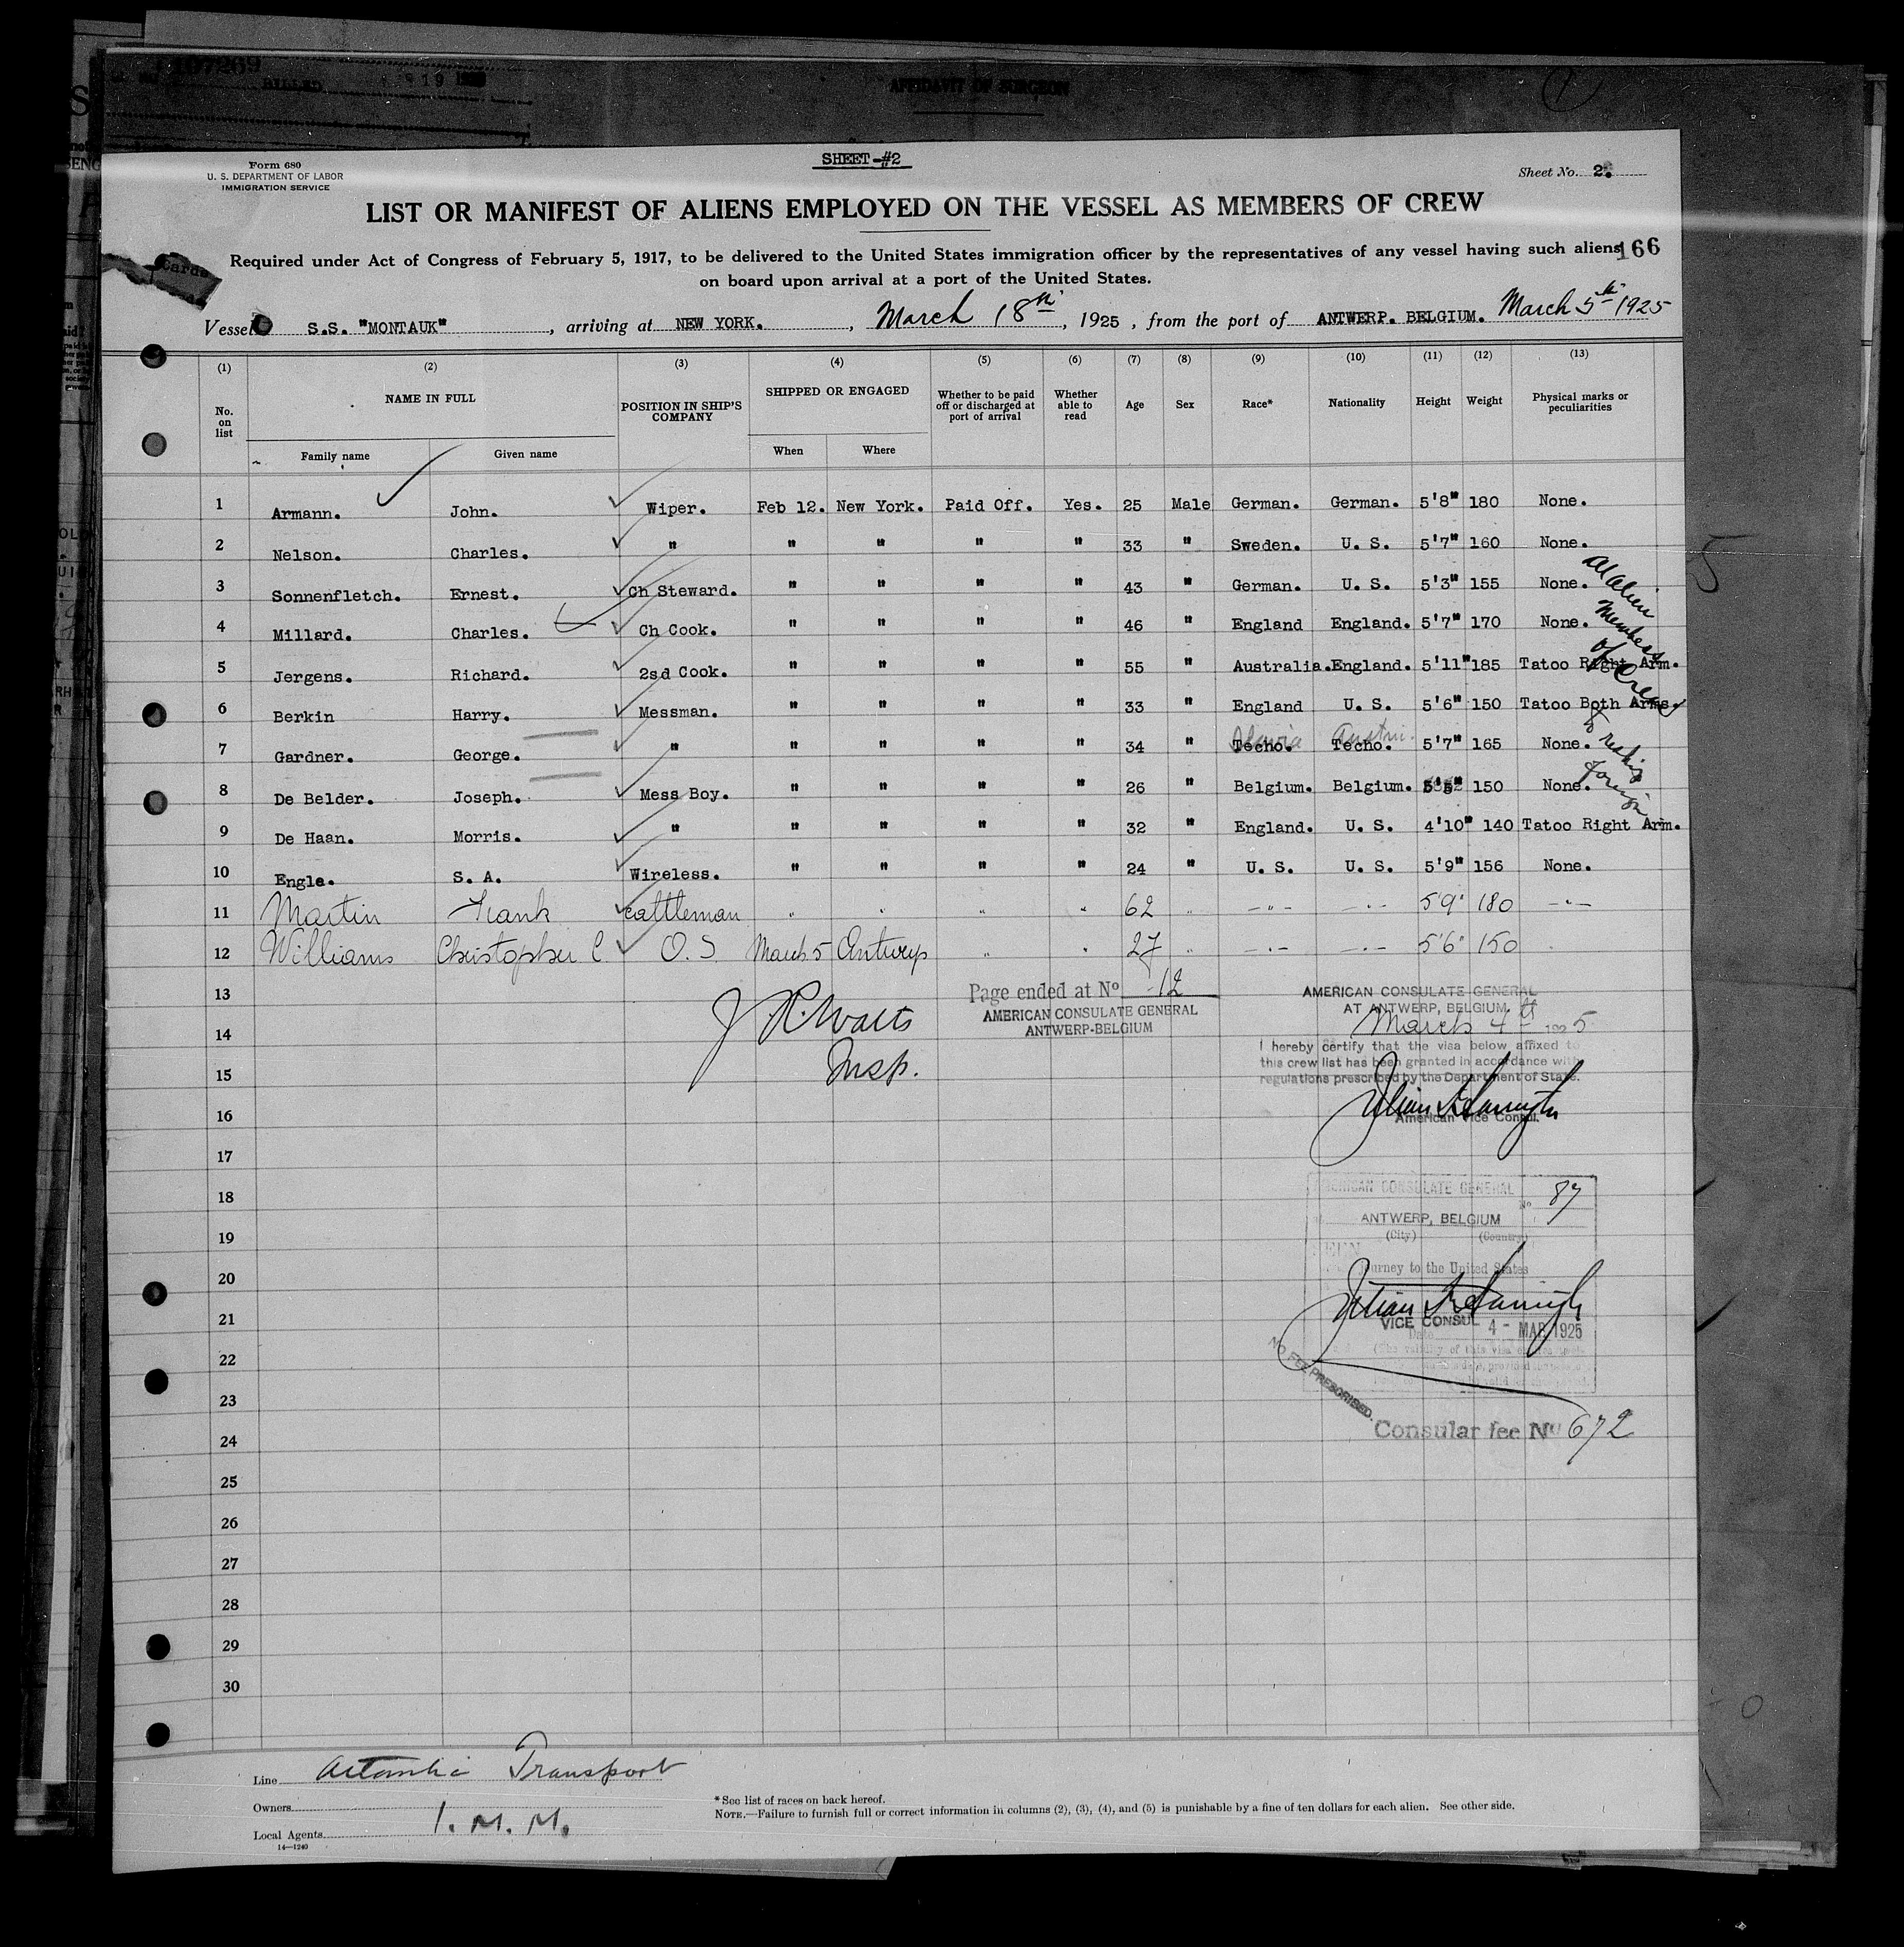 107269
BILLED
AFFIDAVIT OF SURGEON
Form 680
U. S. DEPARTMENT OF LABOR
IMMIGRATION SERVICE
SHEET-#2
Sheet No. 2.
LIST OR MANIFEST OF ALIENS EMPLOYED ON THE VESSEL AS MEMBERS OF CREW
Required under Act of Congress of February 5, 1917, to be delivered to the United States immigration officer by the representatives of any vessel having such aliens
166
on board upon arrival at a port of the United States.
Cards
Vessel S.S. "MONTAUK" , arriving at NEW YORK. , March 18th , 1925 , from the port of ANTWERP. BELGIUM. March 5th 1925
(1) (2) (3) (4) (5) (6) (7) (8) (9) (10) (11) (12) (13)
No. on list NAME IN FULL POSITION IN SHIP'S COMPANY SHIPPED OR ENGAGED Whether to be paid off or discharged at port of arrival Whether able to read Age Sex Race* Nationality Height Weight Physical marks or peculiarities
Family name Given name When Where
1 Armann. John. Wiper. Feb 12. New York. Paid Off. Yes. 25 Male German. German. 5'8" 180 None.
2 Nelson. Charles. " " " " " 33 " Sweden. U. S. 5'7" 160 None.
3 Sonnenfletch. Ernest. Ch Steward. " " " " 43 " German. U. S. 5'3" 155 None.
4 Millard. Charles. Ch Cook. " " " " 46 " England England. 5'7" 170 None.
5 Jergens. Richard. 2sd Cook. " " " " 55 " Australia. England. 5'11" 185 Tatoo Right Arm.
6 Berkin Harry. Messman. " " " " 33 " England U. S. 5'6" 150 Tatoo Both Arms.
7 Gardner. George. " " " " " 34 " Techo. Techo. 5'7" 165 None.
8 De Belder. Joseph. Mess Boy. " " " " 26 " Belgium. Belgium. 5'5" 150 None.
9 De Haan. Morris. " " " " " 32 " England. U. S. 4'10" 140 Tatoo Right Arm.
10 Engle. S. A. Wireless. " " " " 24 " U. S. U. S. 5'9" 156 None.
11 Martin Frank cattleman " " " " 62 " -"- -"- 5'9" 180 -"-
12 Williams Christopher C. O. S. March 5 Antwerp " " 27 " -"- -"- 5'6" 150
Alien
Members
of Crew
foreign
13
14
15
16
17
18
19
20
21
22
23
24
25
26
27
28
29
30
Page ended at No 12
AMERICAN CONSULATE GENERAL
ANTWERP-BELGIUM
J. R. Watts
Insp.
AMERICAN CONSULATE GENERAL
AT ANTWERP, BELGIUM.
March 4th 1925
I hereby certify that the visa below affixed to
this crew list has been granted in accordance with
regulations prescribed by the Department of State.
American Vice Consul.
AMERICAN CONSULATE GENERAL
No 87
ANTWERP, BELGIUM
(City) (Country)
SEEN
journey to the United States
VICE CONSUL
Date 4 - MAR 1925
NO FEE PRESCRIBED.
Consular fee No 672
Line Atlantic Transport
Owners
I. M. M.
Local Agents
14—1240
* See list of races on back hereof.
NOTE.—Failure to furnish full or correct information in columns (2), (3), (4), and (5) is punishable by a fine of ten dollars for each alien. See other side.